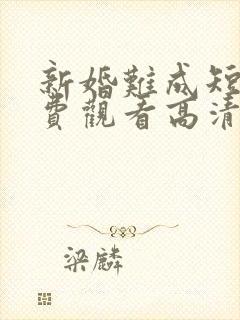 新婚難成短
費觀看高清
梁麟